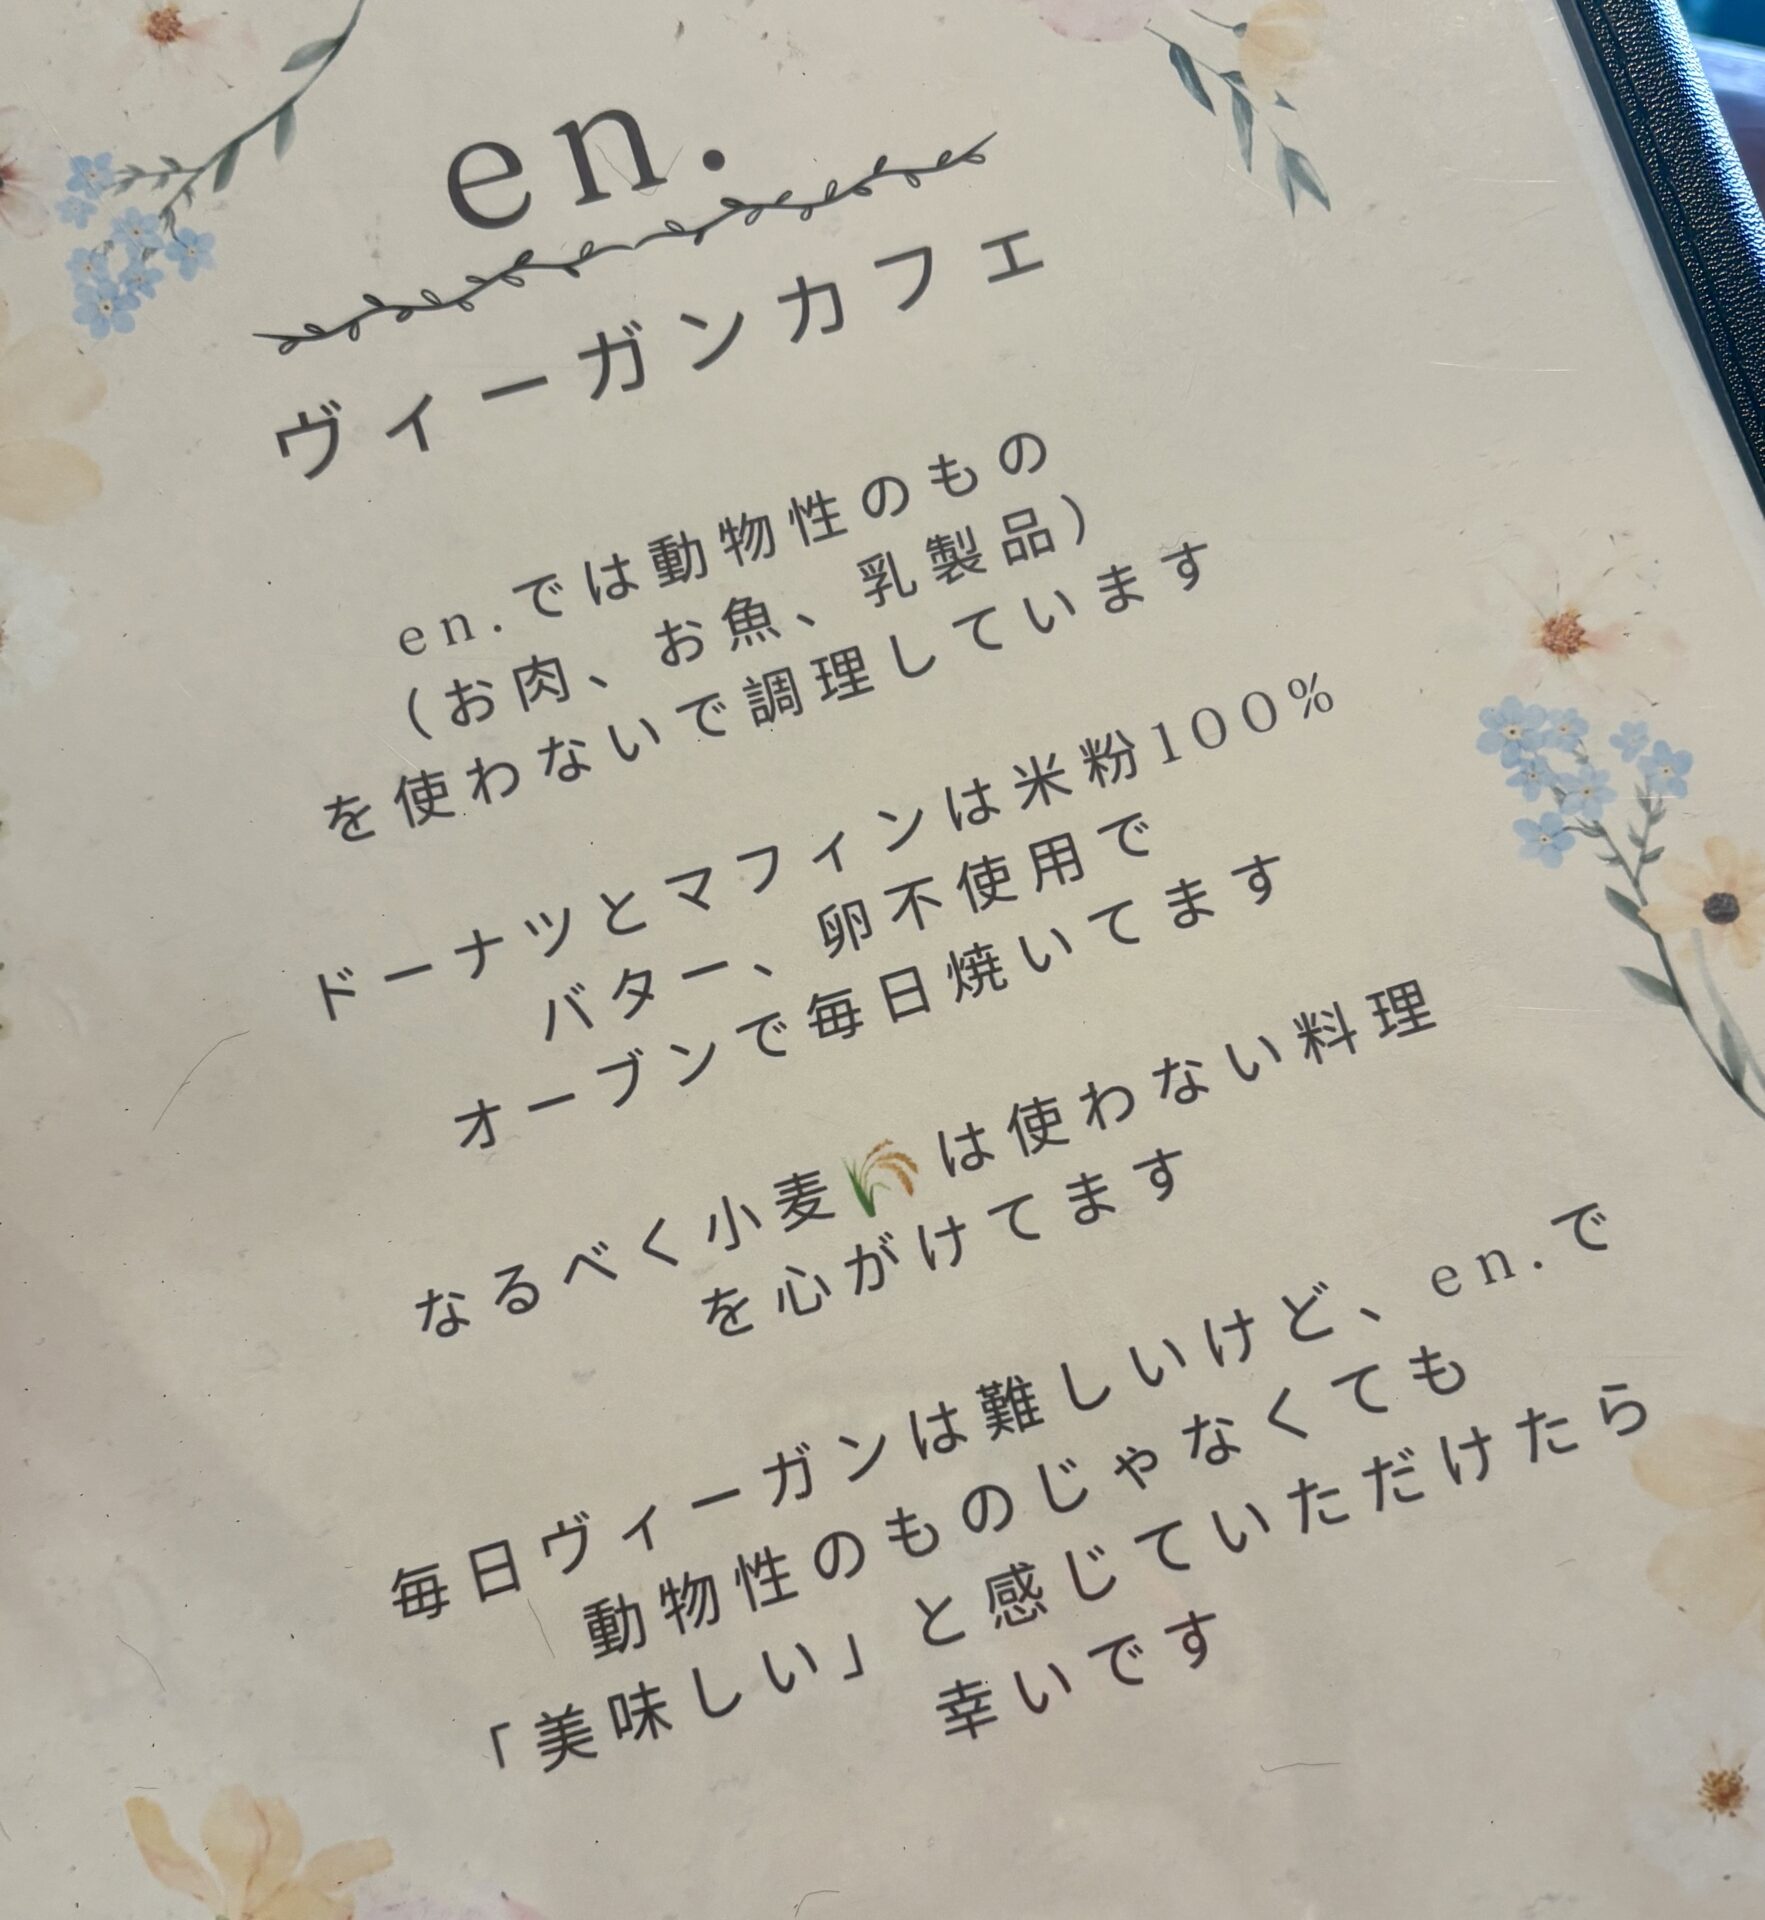 en.
ヴィーガンカフェ
en.では動物性のもの
（お肉、お魚、乳製品）
を使わないで調理しています
ドーナツとマフィンは米粉100%
バター、卵不使用で
オーブンで毎日焼いてます
なるべく小麦🌾は使わない料理
を心がけてます
毎日ヴィーガンは難しいけど、en.で
動物性のものじゃなくても
「美味しい」と感じていただけたら
幸いです